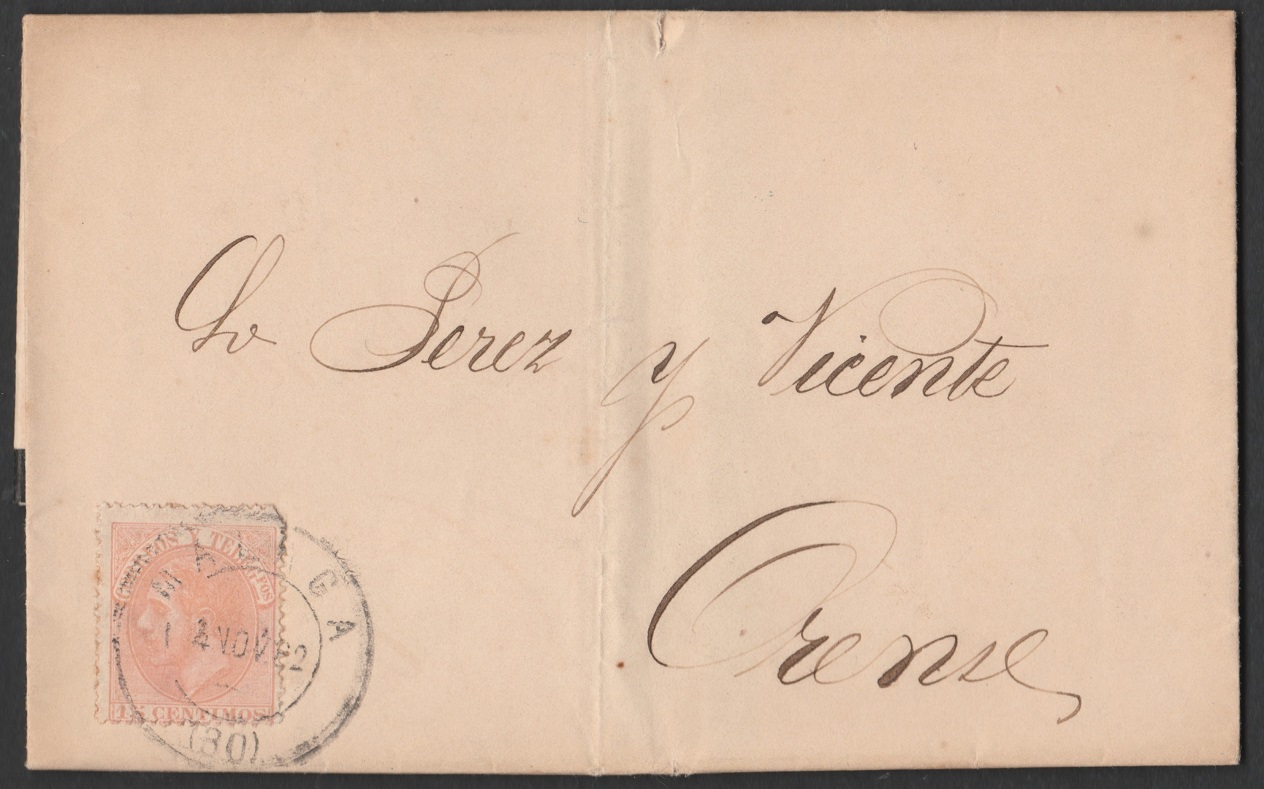 Perez y Vicente
Orense
CORREOS Y TELEGFOS
15 CENTIMOS
MALAGA
NOV 82
(30)